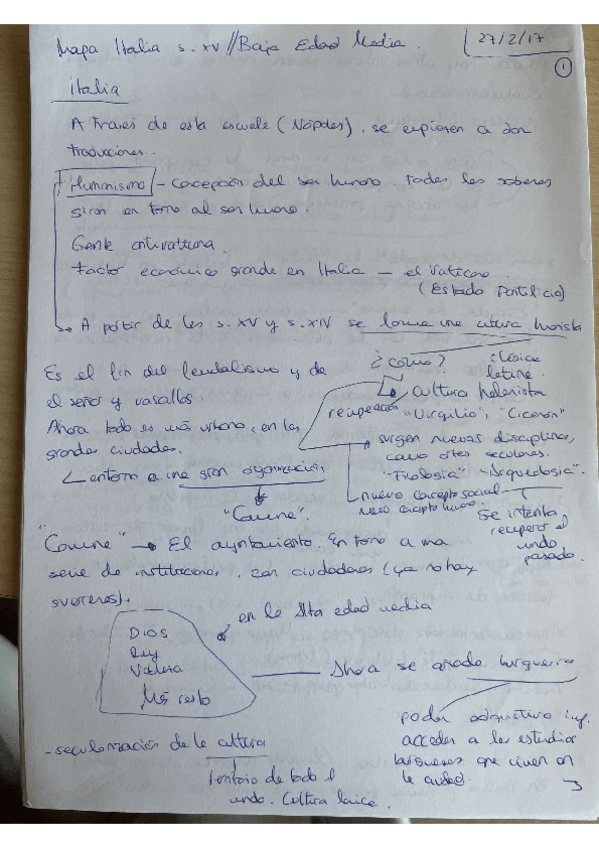 Mapa Italia s. XV // Baja Edad Media.
27/2/17
1
italia
A través de esta escuela (Nápoles), se expiesen a dar
traducciones.
Hummismo - concepción del ser humano todos los saberes
giran en torno al ser humano.
Gente antivaticana
factor económico grande en Italia - el Vaticano.
(Estado Pontificio)
A partir de los s. XV y s. XIV se forma una cultura
¿Como?
clásica
latina.
Es el fin del feudalismo y de
el señor y vasallos.
Ahora todo es más urbano, en las
grandes ciudades.
entorno a una gran organización
"Comune".
cultura helenista
recuperación "Virgilio", "Ciceron"
surgen nuevas disciplinas,
como artes seculares.
"Filología" "Arqueología".
nuevo concepto social
nuevo concepto humano.
Se intenta
recuperar el
mundo
pasado.
"Comune" → El ayuntamiento. En torno a una
serie de instituciones, con ciudadanos (ya no hay
guerreros).
en la Alta edad media
DIOS
Rey
Nobleza
resto
Ahora se añade burguesía
poder adquisitivo
acceder a los estudios
burgueses que viven en
la ciudad.
- secularización de la cultura
de todo el
mundo. Cultura laica.